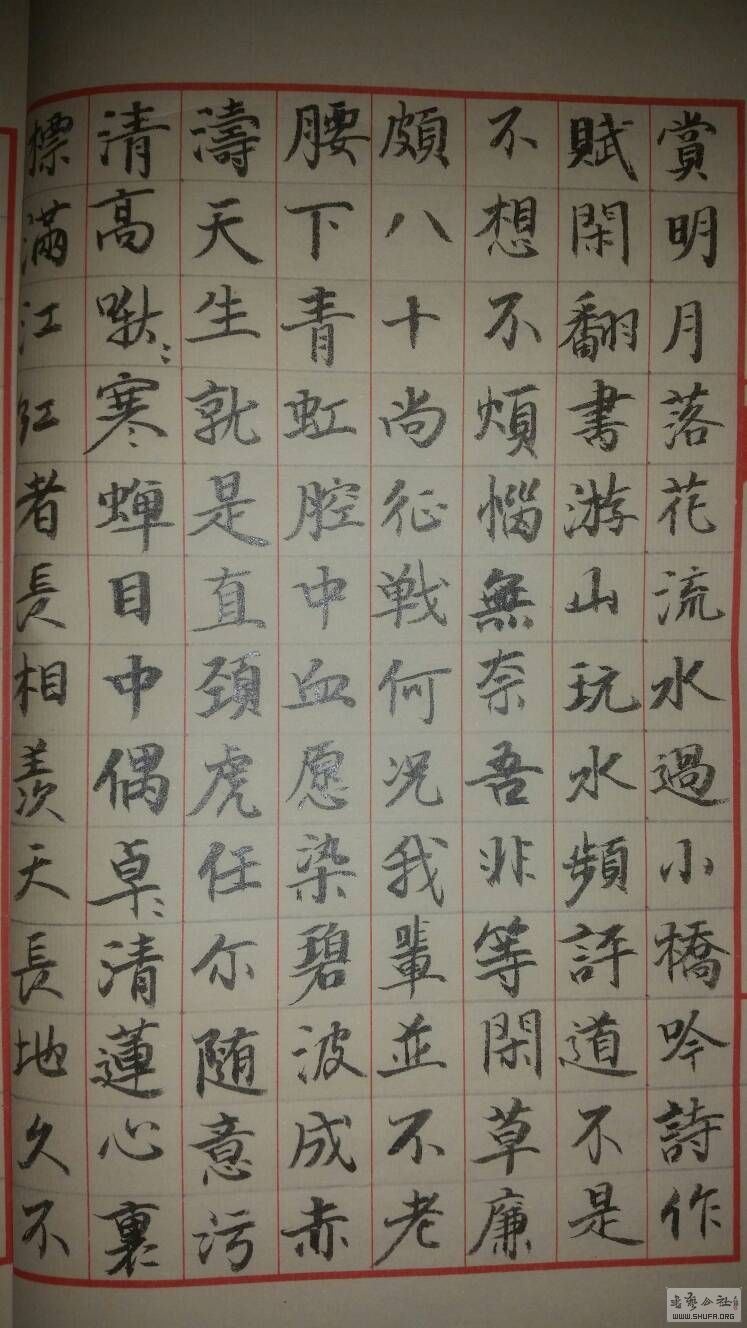 賞明月落花流水過小橋吟詩作
賦閑翻書游山玩水頻評道不是
不想不煩惱無奈吾非等閑草廉
頗八十尚征戰何況我輩並不老
腰下青虹腔中血愿染碧波成赤
濤天生就是直頚虎任尓随意污
清高啾〻寒蟬目中偶卓〻清蓮心裏
標滿江紅者長相羨天長地久不
WWW.SHUFA.ORG